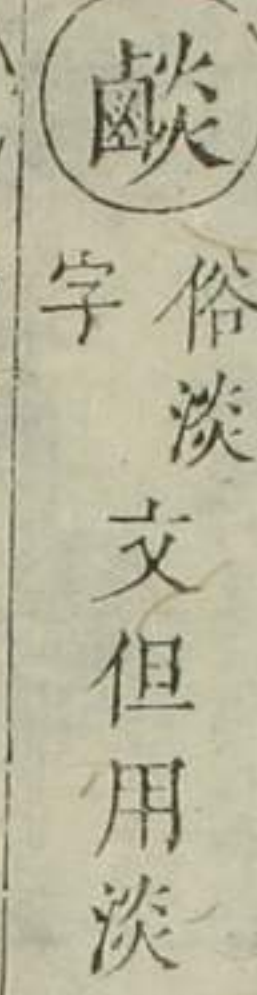 俗淡
字
文但用淡